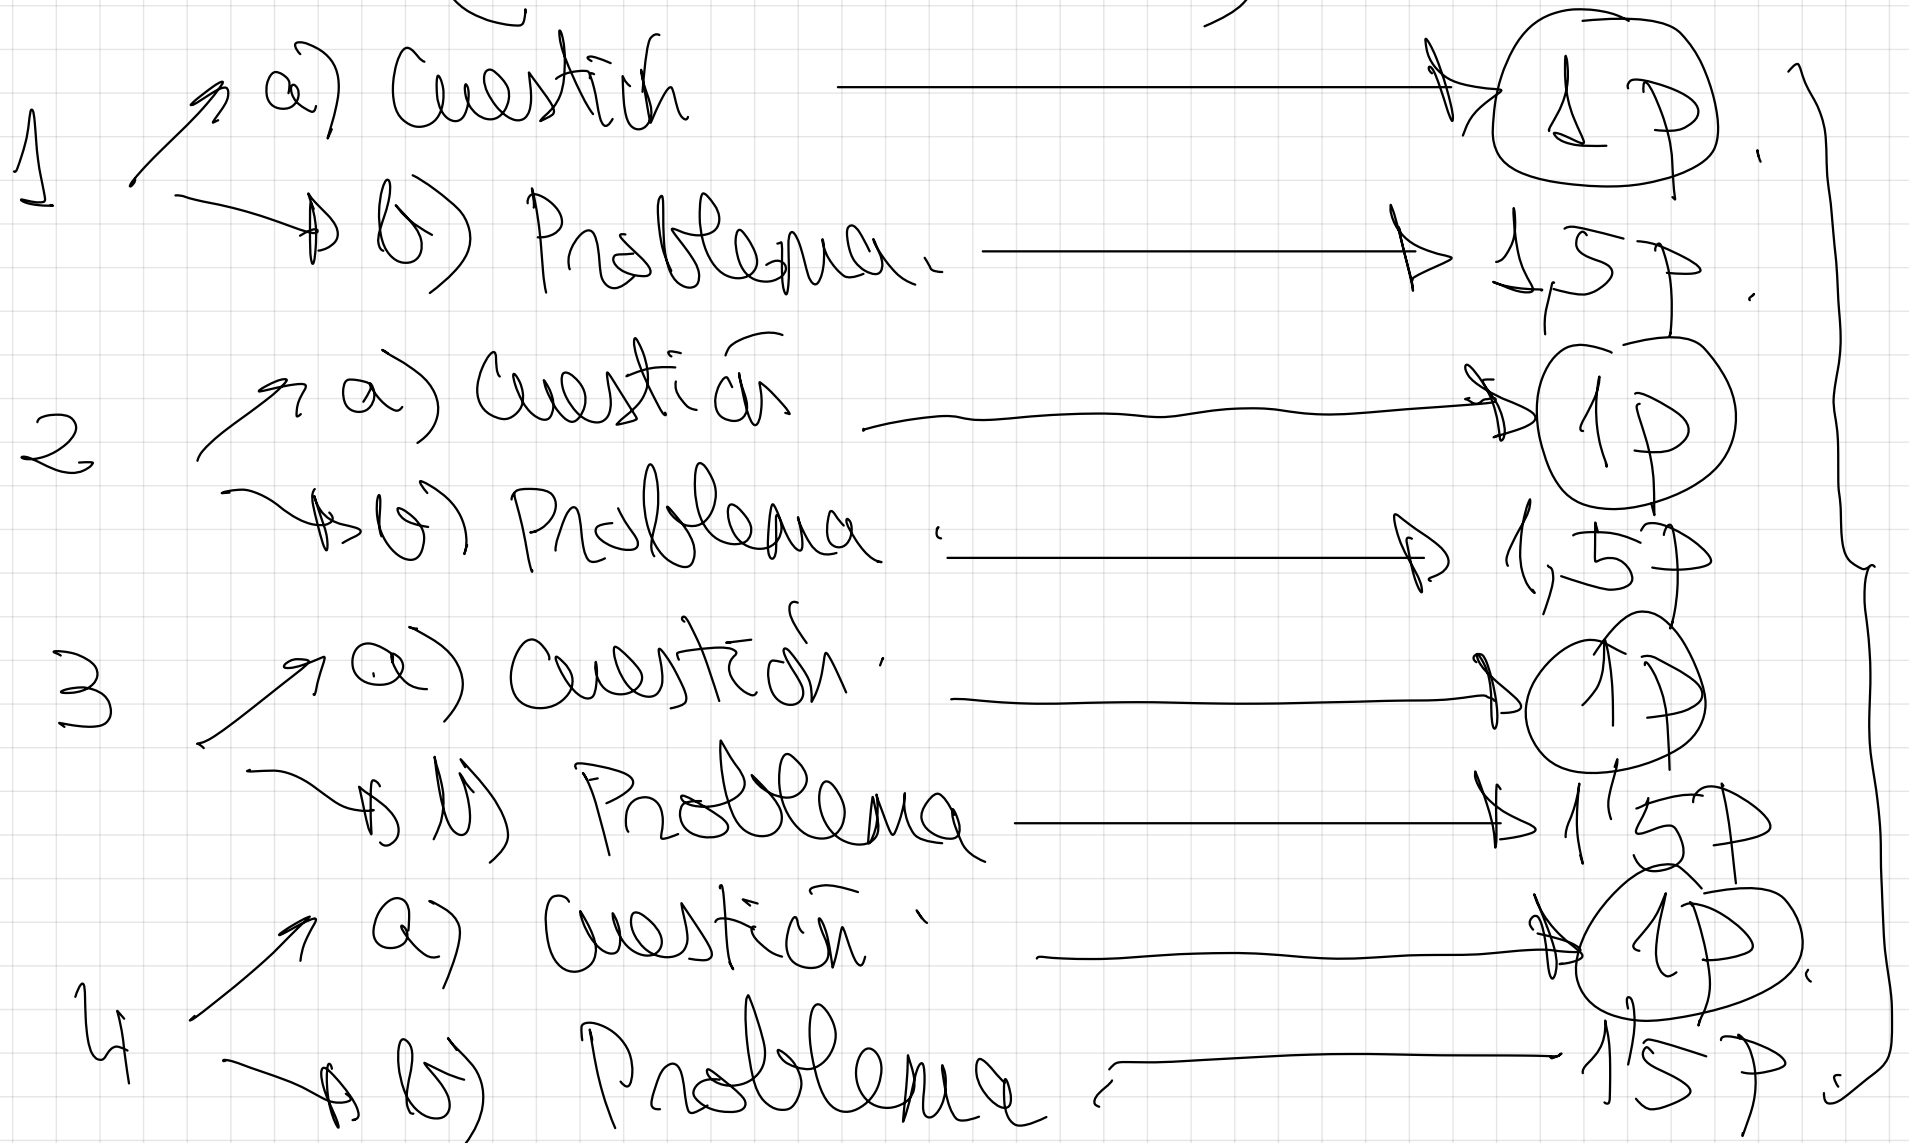 1
a) Cuestión → 1 P
b) Problema. → 1,5 P
2
a) Cuestión → 1 P
b) Problema. → 1,5 P
3
a) Cuestión → 1 P
b) Problema → 1'5 P
4
a) Cuestión → 1 P
b) Problema → 1'5 P